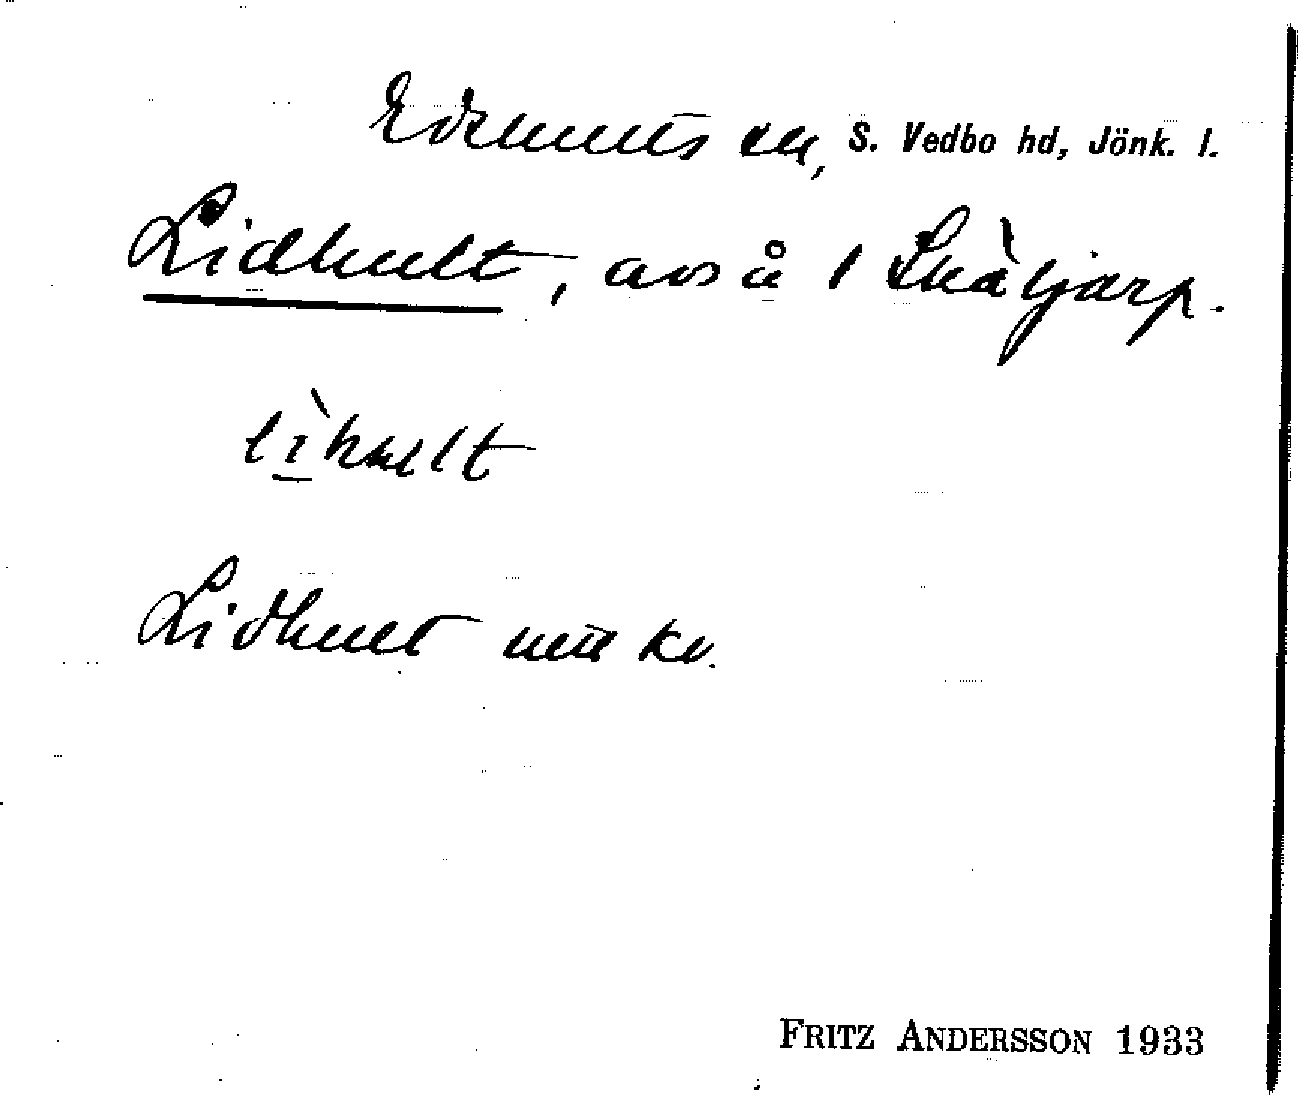 Edshults sn, S. Vedbo hd, Jönk. l.
Lidhult, avs å 1 Skäljarp.
lìhult
Lidhult utt kv.
FRITZ ANDERSSON 1933